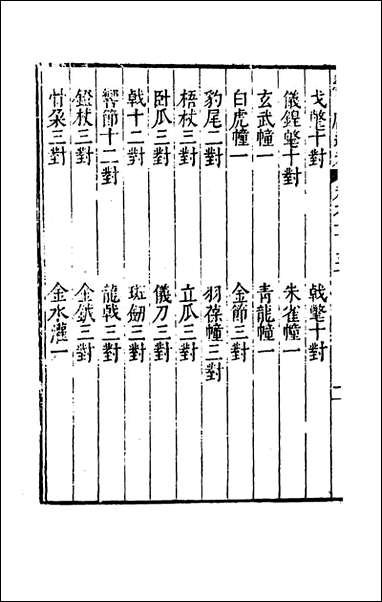 戈氅十對　戟氅十對
儀鍠氅十對　朱雀幢一
玄武幢一　青龍幢一
白虎幢一　金節三對
豹尾二對　羽葆幢三對
梧杖三對　立瓜三對
卧瓜三對　儀刀三對
戟十二對　班劒三對
響節十二對　龍戟三對
鐙杖三對　金鉞三對
骨朶三對　金水灌一